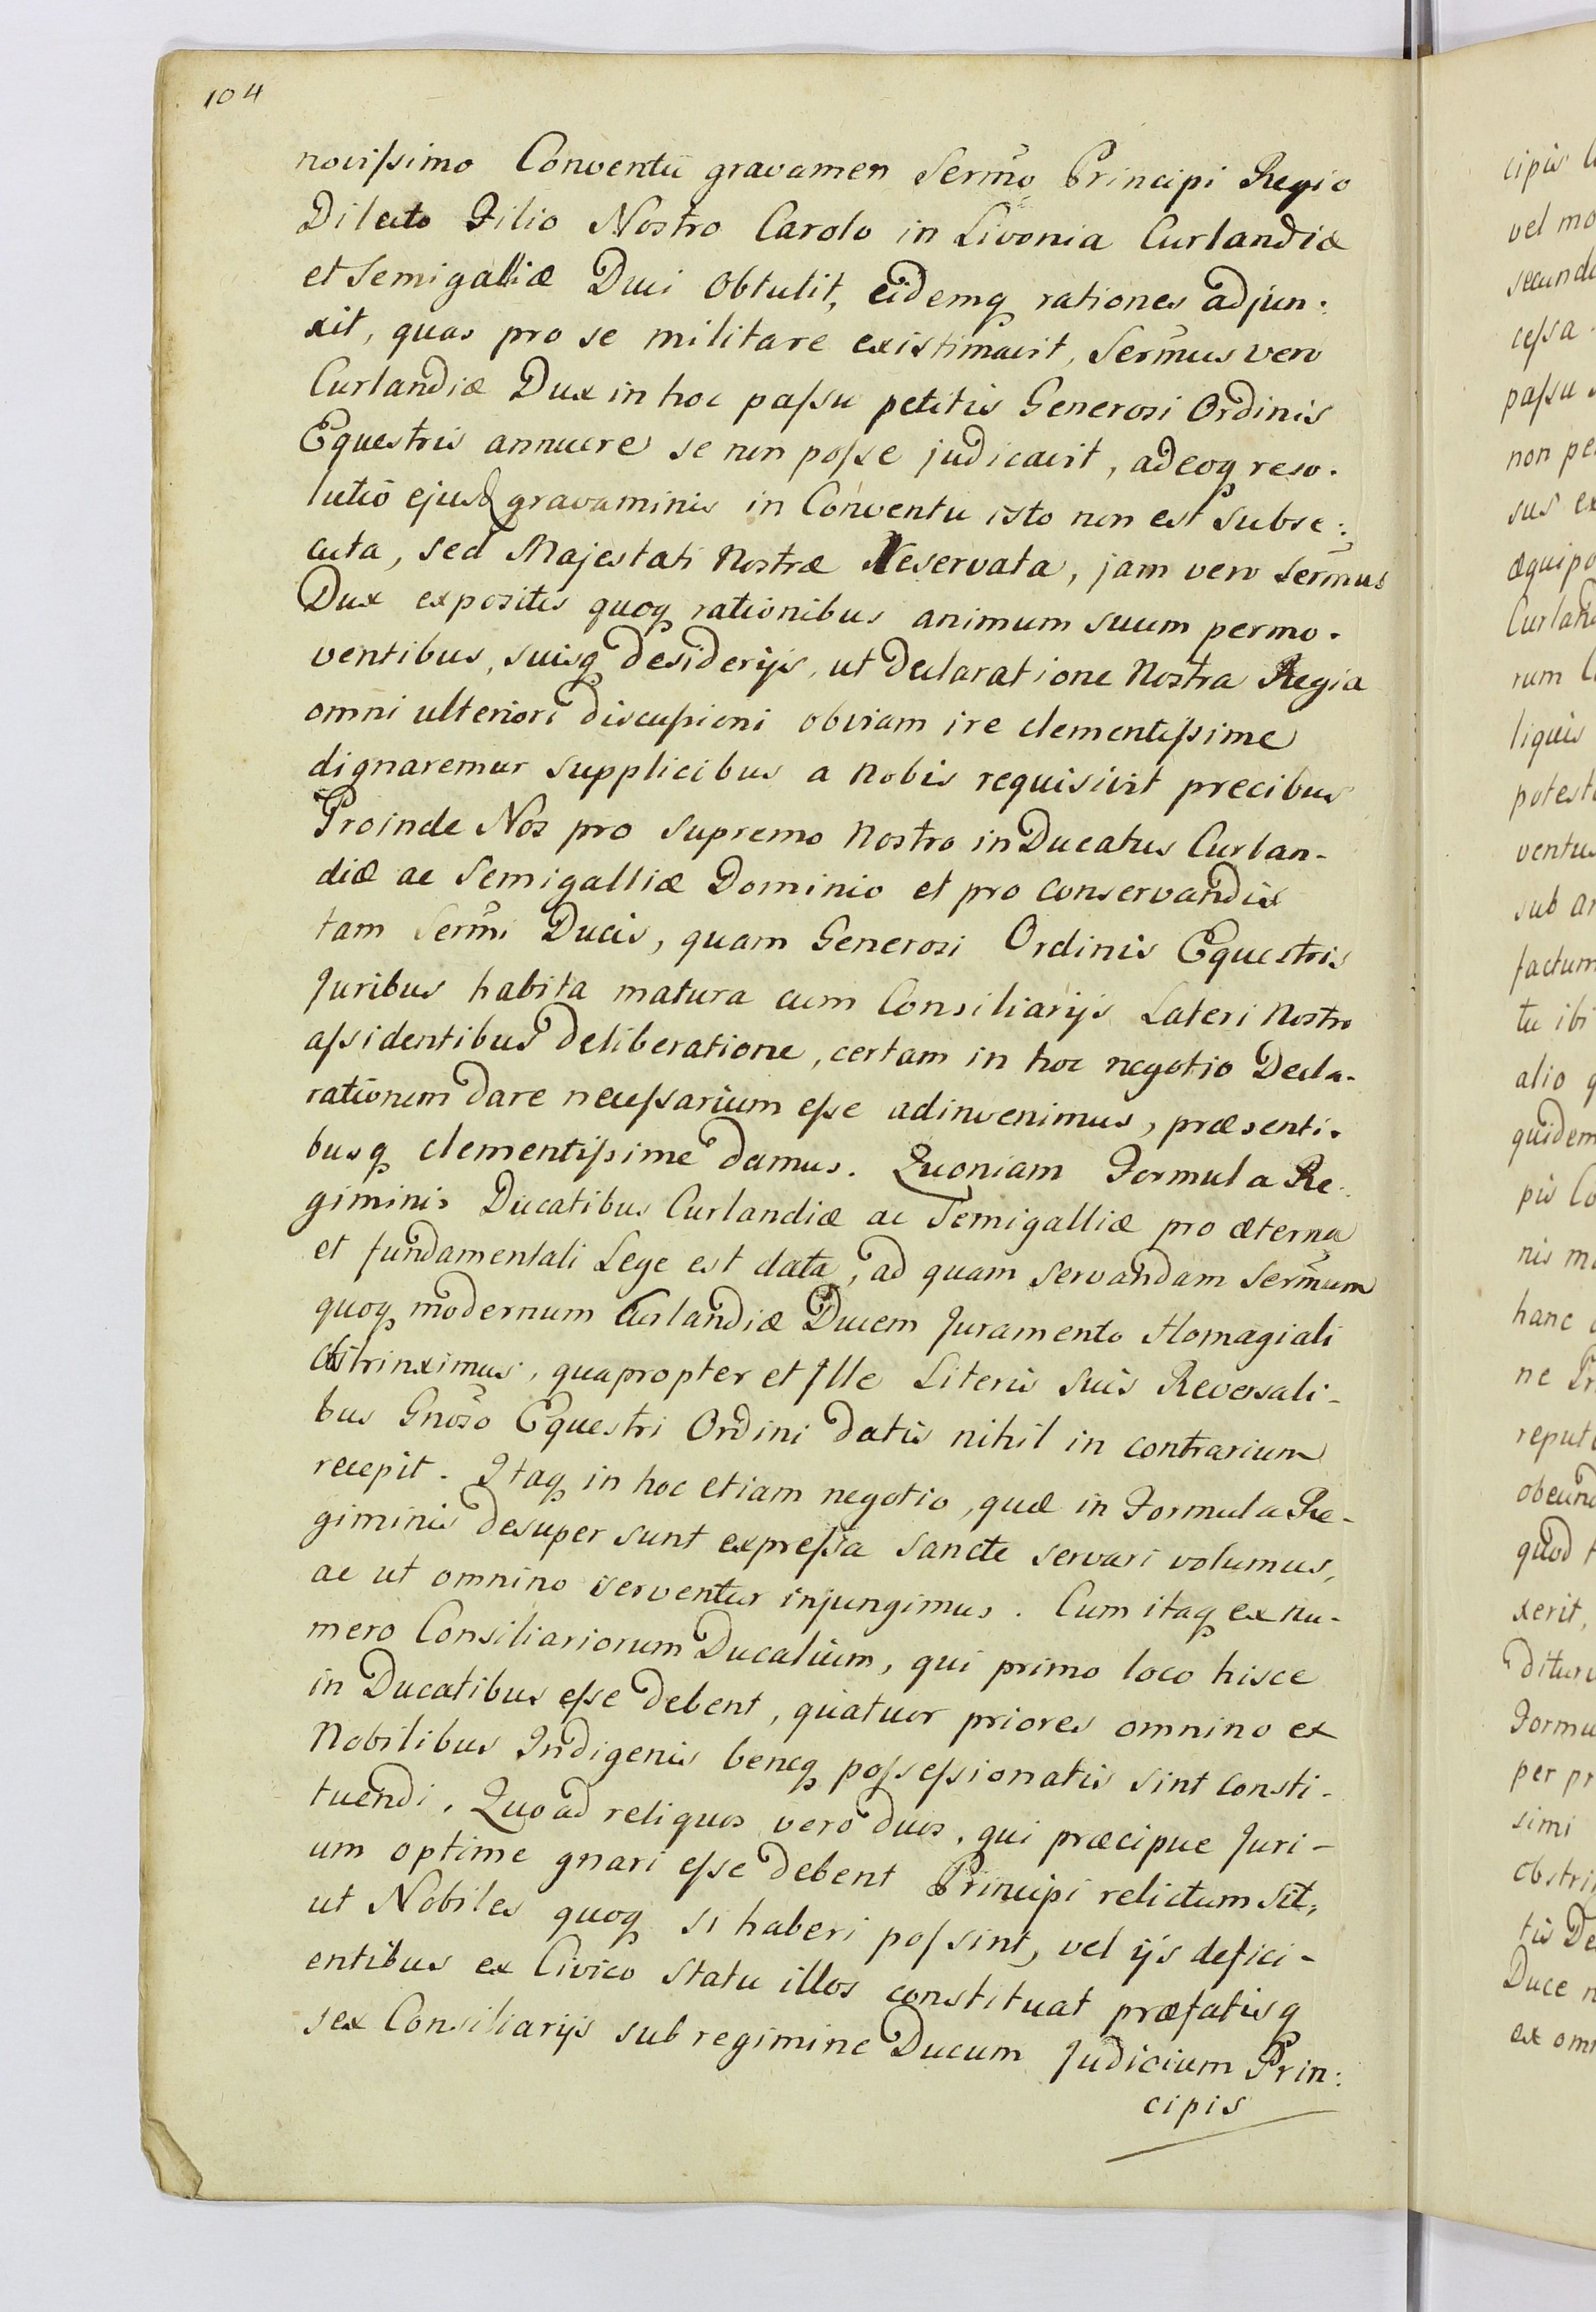 104
novißimo Conventu gravamen Sermo Principi Regio
Dilecto Filio Nostro Carolo in Livonia Curlandiæ
et Semigalliæ Duci obtulit, eidemq rationes adjun:
xit, quas pro se militare existimavit, Sermus vero
Curlandiæ Dux in hoc paßu petitis Generosi Ordinis
Equestris annuere se non poße judicavit, adeoq reso-
lutio ejusd gravaminis in Conventu isto non est subse:
cuta, sed Majestati Nostræ Reservata, jam vero Sermus
Dux expositis quoq rationibus animum suum permo-
ventibus, suisq desiderijs, ut Declaratione Nostra Regia
omni ulteriori discußioni obviam ire clementißime
dignaremur supplicibus a nobis requisivit precibus
Proinde Nos pro Supremo Nostro in Ducatus Curlan-
diæ ac Semigalliæ Dominio et pro conservandis
tam Sermi Ducis, quam Generosi Ordinis Equestris
Juribus habita matura cum Consiliarijs Lateri Nostro
aßidentibus deliberatione, certam in hoc negotio Decla-
rationem dare neceßarium eße adinvenimus, præsenti-
busq clementißime damus. Quoniam Formula Re-
giminis Ducatibus Curlandiæ ac Semigalliæ pro æterna
et fundamentali Lege est data, ad quam servandam Sermum
quoq modernum Curlandiæ Ducem Juramento Homagiali
obstrinximus, quapropter et Ille Literis suis Reversali-
bus Gnoso Equestri Ordini datis nihil in contrarium
recepit. Itaq in hoc etiam negotio, quæ in Formula Re-
giminis desuper sunt expreßa sancte servari volumus,
ac ut omnino serventur injungimus. Cum itaq ex nu-
mero Consiliariorum Ducalium, qui primo loco hisce
in Ducatibus eße debent, quatuor priores omnino ex
Nobilibus Indigenis beneq poßeßionatis sint consti-
tuendi. Quoad reliquos vero duos, qui præcipue Juri-
um optime gnari eße debent Principi relictum sit,
ut Nobiles quoq si haberi poßint, vel ijs defici-
entibus ex Civico statu illos constituat præfatisq
sex Consiliarijs sub regimine Ducum Judicium Prin:
cipis
vel mo
ceßa
paßu
non pe
sus ex
æquipo
Curland
rum
liquis
potest
ventus
sub ar
factum
tu ibi
alio q
quidem
pis Co
nis m
hanc
ne Pr
reput
obeund
quod
xerit,
ditur
Formu
per pr
simi
obstri
tis De
Duce n
ex omn